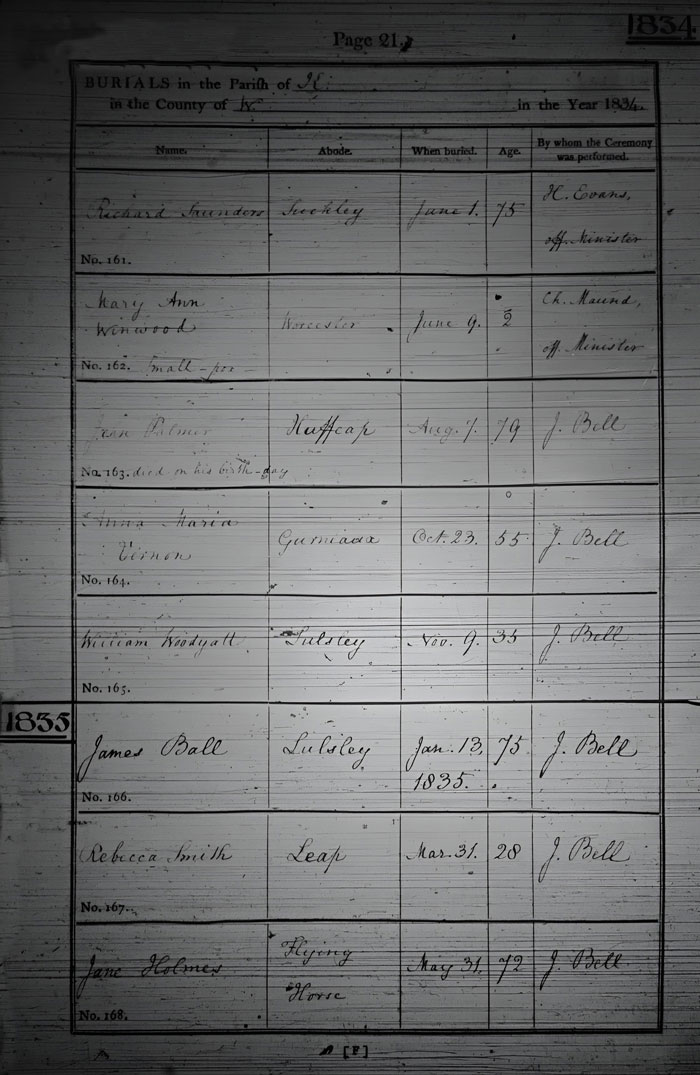 1834
Page 21.
BURIALS in the Parish of
in the County of W. in the Year 1834.
Name. Abode. When buried. Age. By whom the Ceremony was performed.
Richard Saunders Suckley June 1. 75 H. Evans, off. Minister
No. 161.
Mary Ann Winwood Worcester June 9. 2 Ch. Maund, off. Minister
No. 162. Small-pox
Palmer Huffcap Aug. 7. 79 J. Bell
No. 163. died on his birth-day
Anna Maria Vernon Oct. 23. 55 J. Bell
No. 164.
William Woodyatt Lulsley Nov. 9. 35 J. Bell
No. 165.
1835
James Ball Lulsley Jan. 13, 1835. 75 J. Bell
No. 166.
Rebecca Smith Leap Mar. 31. 28 J. Bell
No. 167.
Jane Holmes Flying Horse May 31. 72 J. Bell
No. 168.
[F]